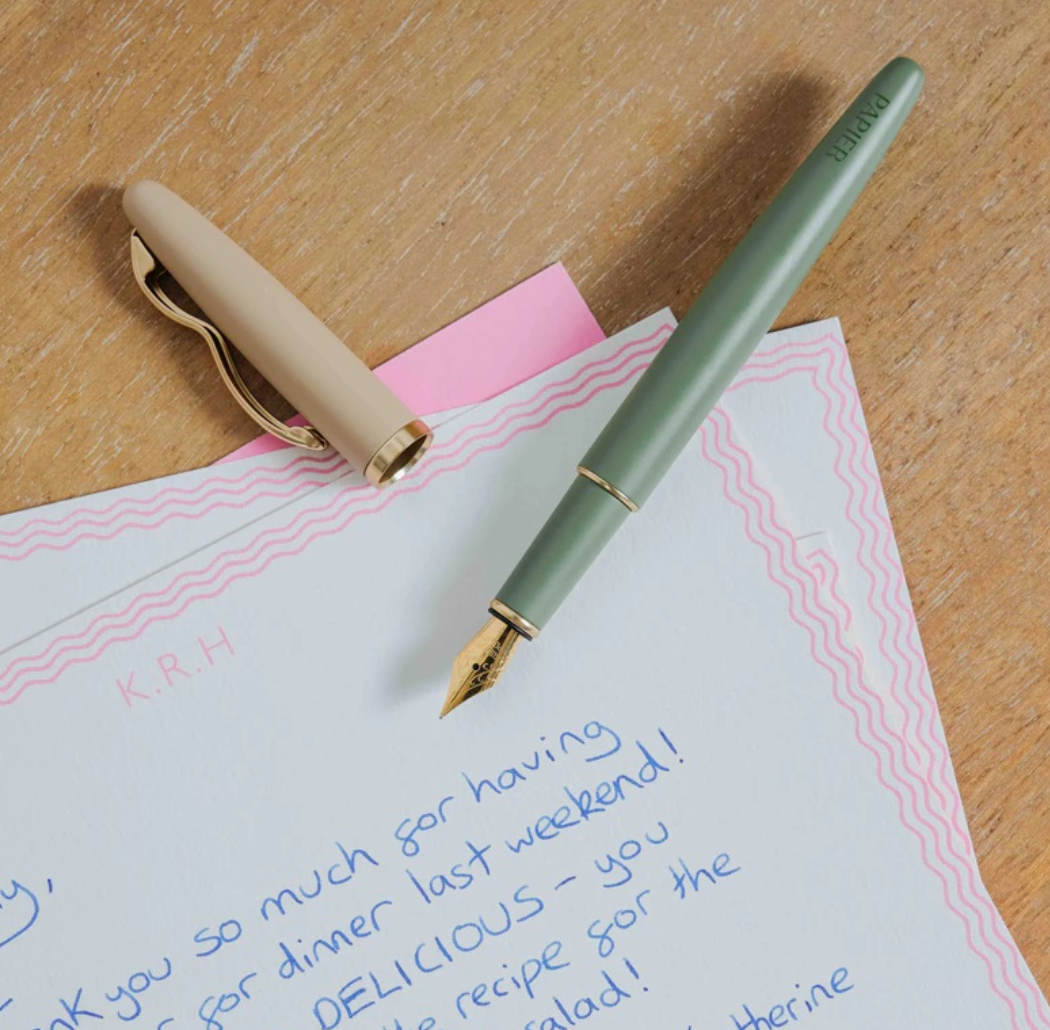 PAPIER
K.R.H
you so much for having
for dinner last weekend!
DELICIOUS - you
recipe for the
salad!